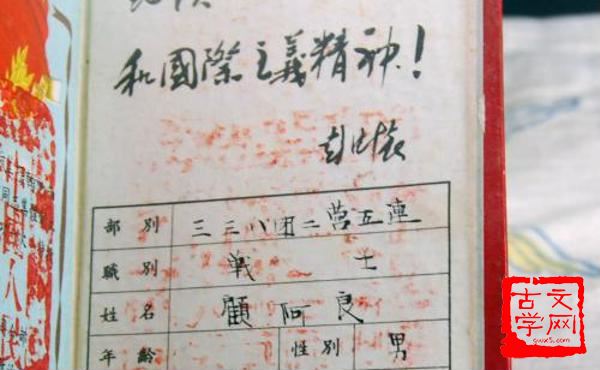 和國際主義精神!
彭德懷
部別 三三八团二营五連
職別 戦士
姓名 顧阿良
年齡 性別 男
八
古文学网
gwx5.com